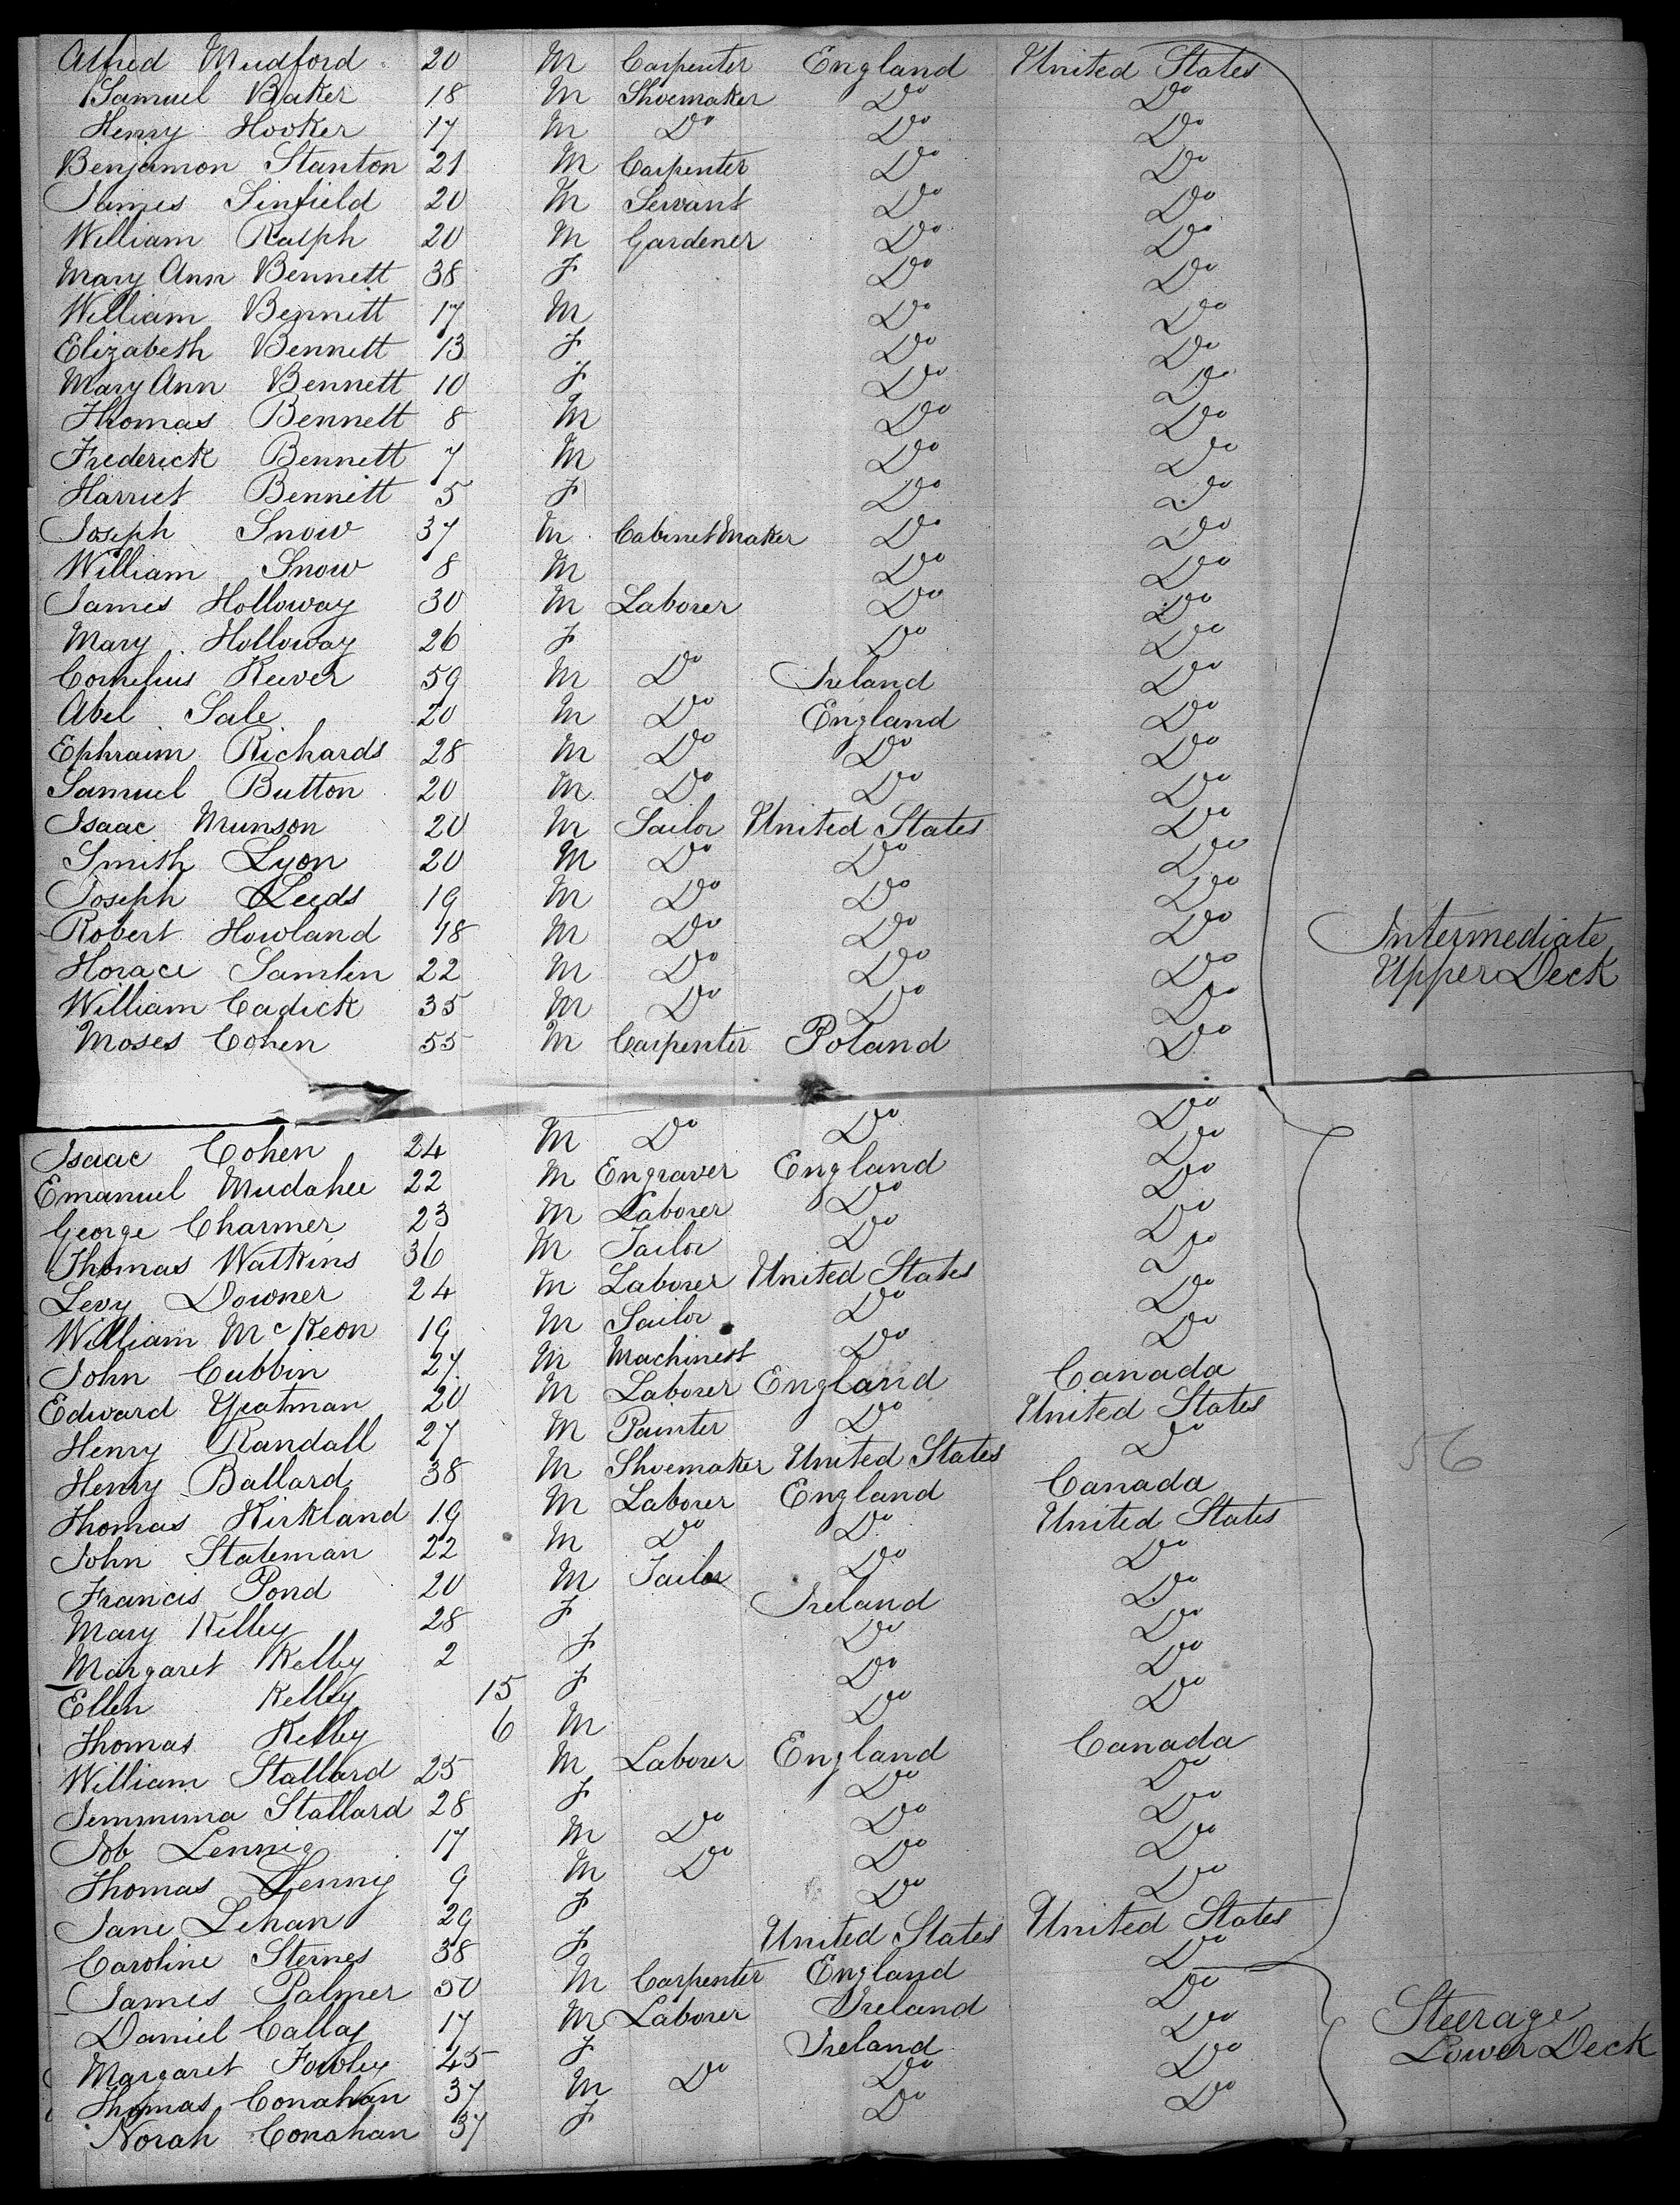 Alfred Mudford 20 M Carpenter England United States
Samuel Baker 18 M Shoemaker Do Do
Henry Hooker 17 M Do Do Do
Benjamon Stanton 21 M Carpenter Do Do
James Sinfield 20 M Servant Do Do
William Ralph 20 M Gardener Do Do
Mary Ann Bennett 38 F Do Do
William Bennett 17 M Do Do
Elizabeth Bennett 13 F Do Do
Mary Ann Bennett 10 F Do Do
Thomas Bennett 8 M Do Do
Frederick Bennett 7 M Do Do
Harriet Bennett 5 F Do Do
Joseph Snow 37 M Cabinet Maker Do Do
William Snow 8 M Do Do
James Holloway 30 M Laborer Do Do
Mary Holloway 26 F Do Do
Cornelius Keever 59 M Do Ireland Do
Abel Sale 20 M Do England Do
Ephraim Richards 28 M Do Do Do
Samuel Button 20 M Do Do Do
Isaac Munson 20 M Sailor United States Do
Smith Lyon 20 M Do Do Do
Joseph Leeds 19 M Do Do Do
Robert Howland 18 M Do Do Do Intermediate
Horace Samlin 22 M Do Do Do Upper Deck
William Cadick 35 M Do Do Do
Moses Cohen 55 M Carpenter Poland Do
Isaac Cohen 24 M Do Do Do
Emanuel 22 M Engraver England Do
George Charmer 23 M Laborer Do Do
Thomas Watkins 36 M Tailor Do Do
Levy Downer 24 M Laborer United States Do
William McKeon 19 M Sailor Do Do
John Cubbin 27 M Machinest Do Do
Edward Yeatman 20 M Laborer England Canada
Henry Randall 27 M Painter Do United States
Henry Ballard 38 M Shoemaker United States Do 56
Thomas Kirkland 19 M Laborer England Canada
John Stateman 22 M Do Do United States
Francis Pond 20 M Tailor Do Do
Mary Kelley 28 F Ireland Do
Margaret Kelley 2 F Do Do
Ellen Kelley 15 F Do Do
Thomas Kelley 6 M Do Do
William Stallard 25 M Laborer England Canada
Jemmima Stallard 28 F Do Do
Job Lennig 17 M Do Do Do
Thomas Lennig 9 M Do Do Do
Jane Lehan 29 F Do Do
Caroline Sternes 38 F United States United States
James Palmer 50 M Carpenter England Do
Daniel Callag 17 M Laborer Ireland Do Steerage
Margaret Fowley 45 F Ireland Do Lower Deck
Thomas Conahan 37 M Do Do Do
Norah Conahan 37 F Do Do